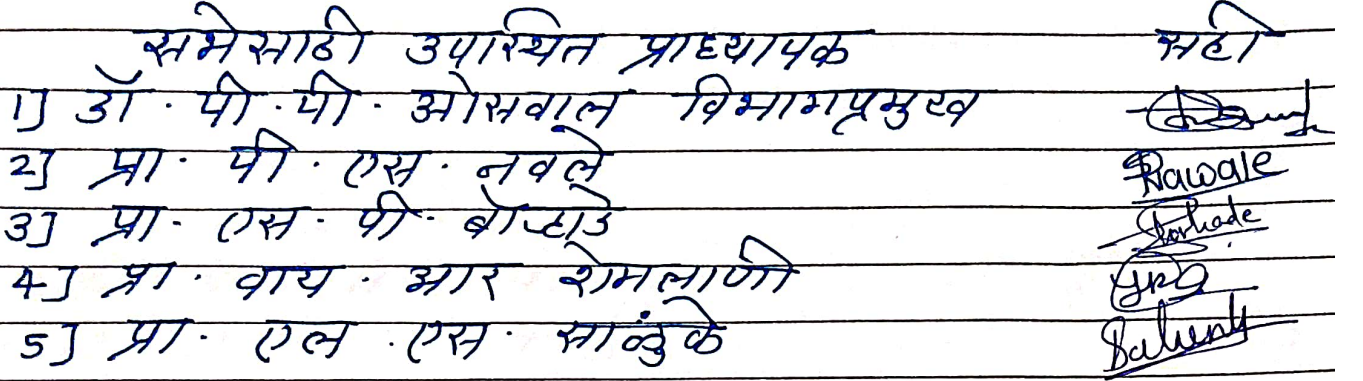 सभेसाठी उपस्थित प्राध्यापक सही
1] डॉ. पी. पी. ओसवाल विभागप्रमुख
2] प्रा. पी. एस. नवले Nawale
3] प्रा. एस. पी. बोऱ्हाडे
4] प्रा. वाय. आर शेमलाणी
5] प्रा. एल. एस. साळुंके